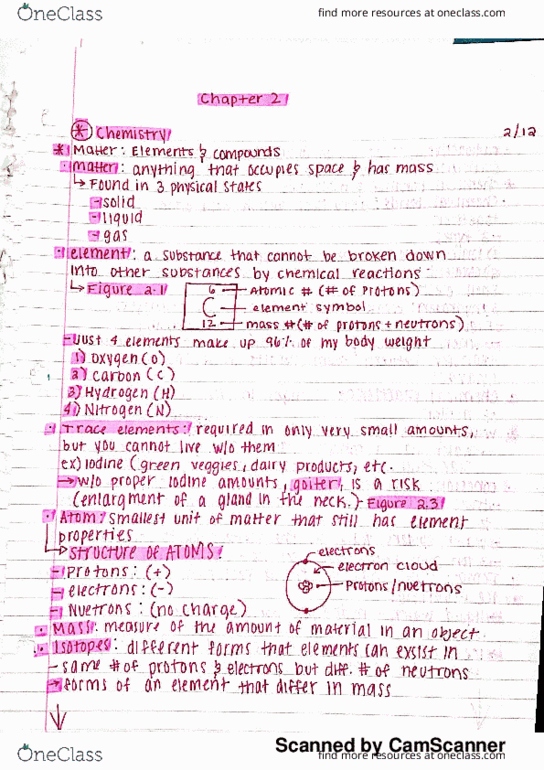 OneClass
find more resources at oneclass.com
Chapter 2
* Chemistry
2/12
* Matter: Elements & compounds
· matter: anything that occupies space & has mass
↳ Found in 3 physical states
- solid
- liquid
- gas
· element: a substance that cannot be broken down
into other substances by chemical reactions
↳ Figure 2.1
6
C
12
Atomic # (# of protons)
element symbol
mass # (# of protons + neutrons)
- Just 4 elements make up 96% of my body weight
1) Oxygen (O)
2) Carbon (C)
3) Hydrogen (H)
4) Nitrogen (N)
· Trace elements: required in only very small amounts,
but you cannot live w/o them
ex) Iodine (green veggies, dairy products, etc.
→ w/o proper iodine amounts, goiter, is a risk
(enlargment of a gland in the neck.) Figure 2.3
· Atom: smallest unit of matter that still has element
properties
↳ STRUCTURE OF ATOMS:
- Protons: (+)
- electrons: (-)
- Nuetrons: (no charge)
electrons
electron cloud
Protons/nuetrons
· Mass: measure of the amount of material in an object
· Isotopes: different forms that elements can exsist in
- same # of protons & electrons but diff. # of neutrons
→ forms of an element that differ in mass
Scanned by CamScanner
OneClass
find more resources at oneclass.com